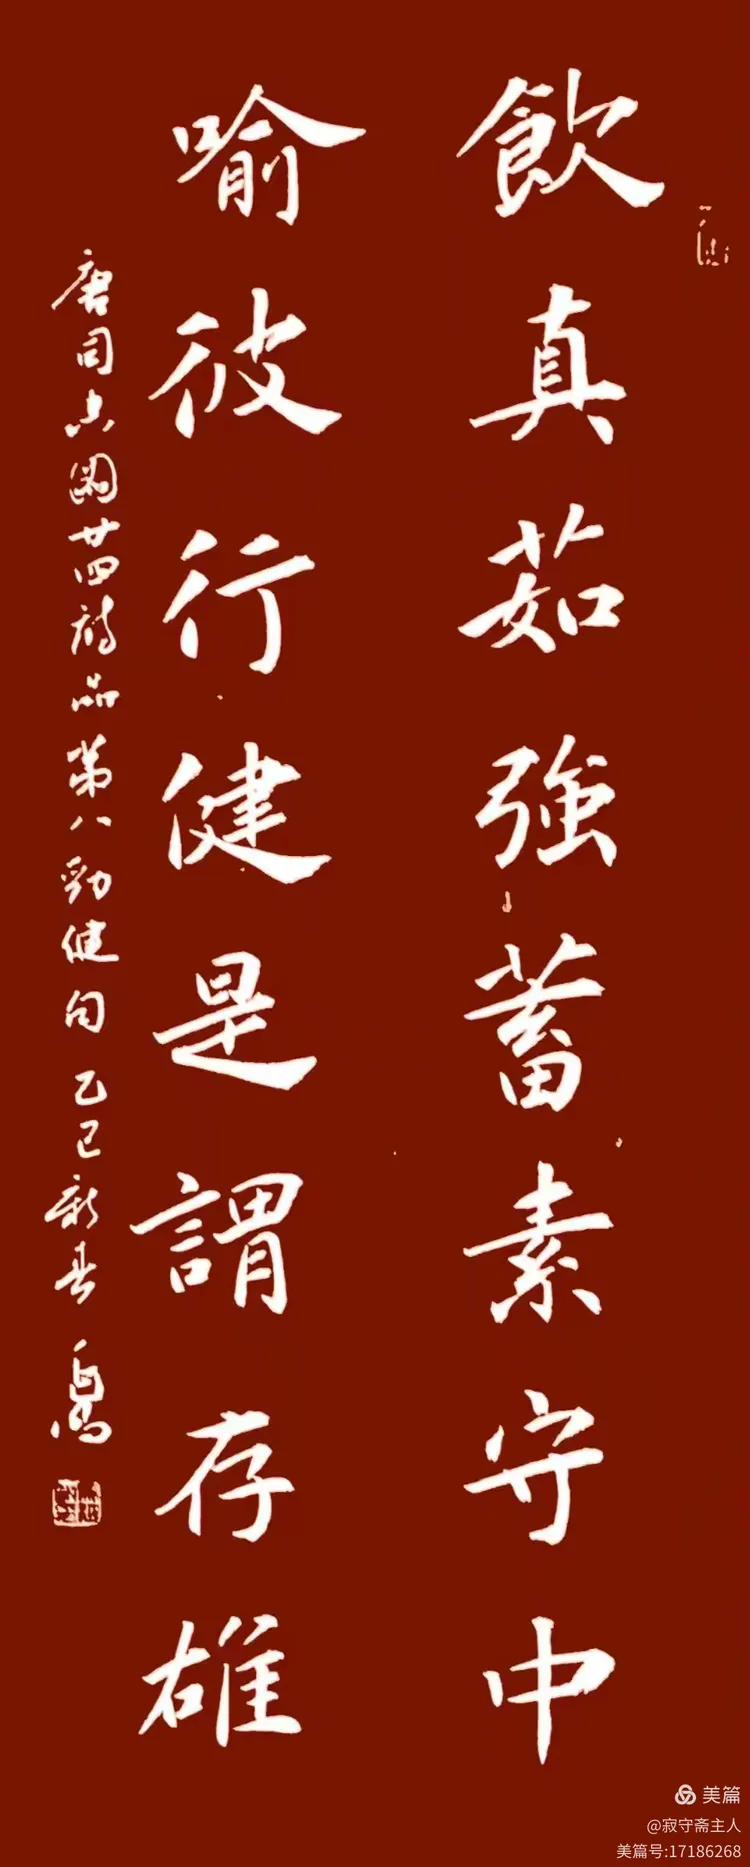 飲真茹強蓄素守中
喻彼行健是謂存雄
唐司空圖廿四詩品第八勁健句 乙巳新春
美篇
@寂守斋主人
美篇号:17186268